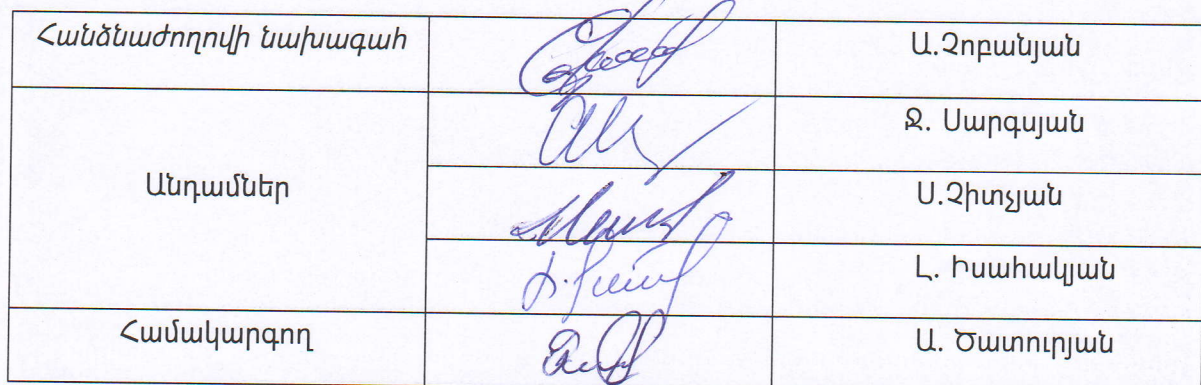 Հանձնաժողովի նախագահ Ա.Չոբանյան
Ջ. Սարգսյան
Անդամներ Ս.Չիտչյան
Լ. Իսահակյան
Համակարգող Ա. Ծատուրյան